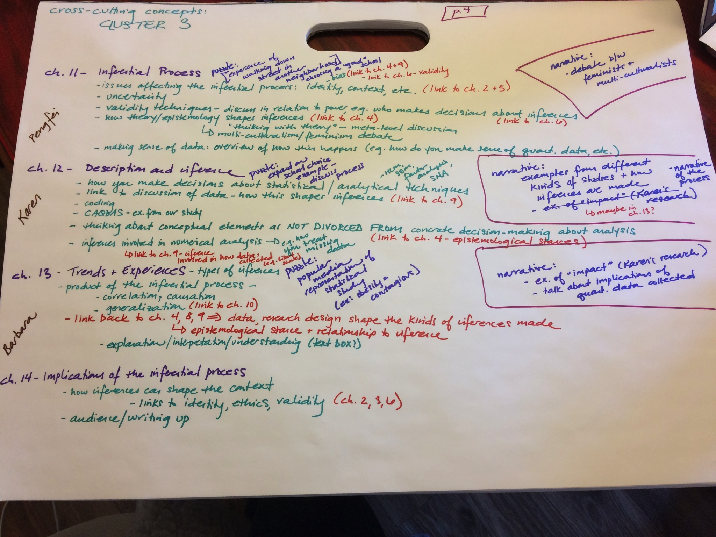 cross-cutting concepts:
CLUSTER 3
ch. 11 - Inferential Process
puzzle:
experience of
walking down
street in
another
neighborhood
- bias (link to ch. 4+9)
- link to ch. 6 - validity
- issues affecting the inferential process: identity, context, etc. (link to ch. 2+3)
- uncertainty
- validity techniques - discuss in relation to power e.g. who makes decisions about inferences
(link to ch. 6)
- how theory/epistemology shapes inferences (link to ch. 4)
"thinking with theory" - meta-level discussion
↳ multi-culturalism/feminism debate
- making sense of data: overview of how this happens (e.g. how do you make sense of quant. data, etc.)
narrative:
- debate b/w
feminists +
multi-culturalists
Pengfei
ch. 12 - Description and inference
puzzle:
expand on
school choice
example -
discuss process
factor
analysis,
SNA
- how you make decisions about statistical / analytical techniques
- link to discussion of data - how this shapes inferences (link to ch. 9)
- coding
- CAQDAS - ex. from our study
- thinking about conceptual elements as NOT DIVORCED FROM concrete decision-making about analysis
(link to ch. 4 - epistemological stances)
- inferences involved in numerical analysis → e.g. how
you treat
missing
data
↳ link to ch. 9 - inference
involved in how data
Karen
narrative:
examples from different
kinds of studies + how
inferences are made
- ex. of "impact" (Karen's research)
↳ maybe in
ch. 13?
- narrative
of the
process
ch. 13 - Trends + Experiences - types of inferences
puzzle:
popular
media
representation of
statistical
study
(ex: obesity is
contagious)
- product of the inferential process -
- correlation, causation
- generalization (link to ch. 10)
- link back to ch. 4, 8, 9 ⇒ data, research design shape the kinds of inferences made
↳ epistemological stance + relationship to inference
- explanation/interpretation/understanding (text box?)
Barbara
narrative:
- ex. of "impact" (Karen's research)
- talk about implications of
quant. data collected
ch. 14 - Implications of the inferential process
- how inferences can shape the context
- links to identity, ethics, validity (ch. 2, 3, 6)
- audience/writing up